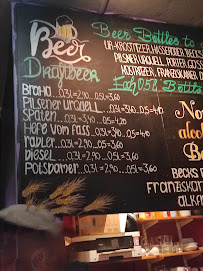 Beer
Draftbeer
Braha....0,3L=2,90...0,5L=3,60
Pilsener Urquell...0,3L=3,60..0,5=4,10
Spaten....0,3L=3,40...0,5=4,20
Hefe vom Fass..0,3L=3,40..0,5=4,10
Radler....0,3L=2,90..0,5L=3,60
Diesel....0,3L=2,90...0,5L=3,60
Potsdamer....0,3L=2,90...0,5L=3,60
Beer Bottles to
UR-KROSTITZER, WASSERBER, BECKS
PILSNER URQUELL, PORTER, GÖSS
KÖSTRITZER, FRANZISKANER D
0,5L Bottle
No
alco
Be
Becks
Franziskan
Alka